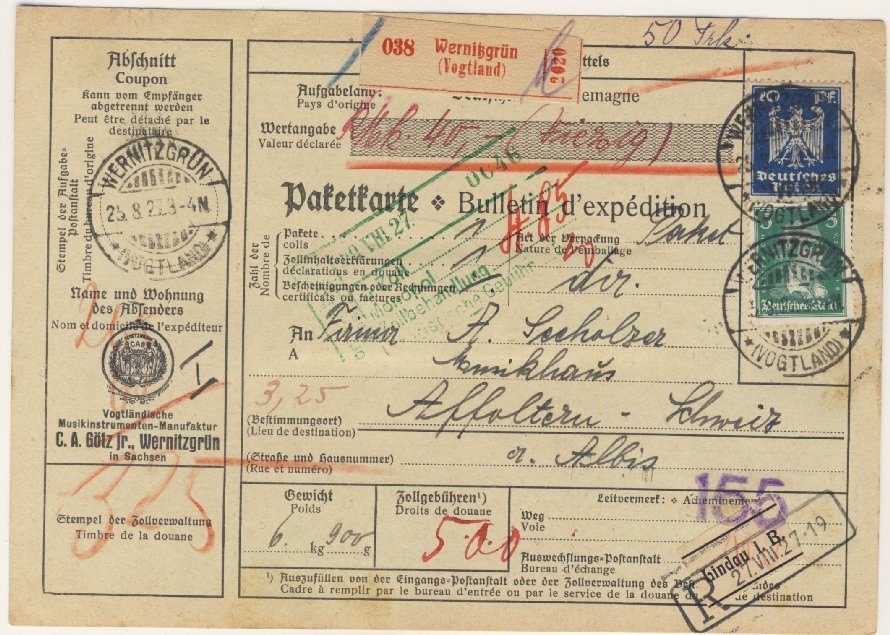 50 Frk.
Abschnitt
Coupon
Kann vom Empfänger
abgetrennt werden
Peut être détaché par le
destinataire
Stempel der Aufgabe-
Postanstalt
Timbre du bureau d'origine
WERNITZGRÜN
25.8.27.3-4N
*(VOGTLAND)*
Name und Wohnung
des Absenders
Nom et domicile de l'expéditeur
Vogtländische
Musikinstrumenten-Manufaktur
C. A. Götz jr., Wernitzgrün
in Sachsen
325
Stempel der Zollverwaltung
Timbre de la douane
038 Wernitzgrün
(Vogtland)
2020
Aufgabeland:
Pays d'origine
emagne
Wertangabe
Valeur déclarée
Rmk 40,- (vierzig)
Paketkarte * Bulletin d'expédition
Zahl der
Nombre de
Pakete
colis
Zollinhaltserklärungen
déclarations en douane
Bescheinigungen oder Rechnungen
certificats ou factures
Art der Verpackung
Nature de l'emballage
Paket
VIII.27
An
A
Firma A.
Musikhaus
3,25
(Bestimmungsort)
(Lieu de destination)
Affoltern - Schweiz
(Straße und Hausnummer)
(Rue et numéro)
a. Albis
Pf.
Deutsches
Reich
WERNITZGRÜN
(VOGTLAND)
5
Deutsches Reich
WERNITZGRÜN
*(VOGTLAND)*
Gewicht
Poids
6. kg 900
Zollgebühren¹)
Droits de douane
500
Leitvermerk: * Acheminement
155
Weg
Voie
Auswechslungs-Postanstalt
Bureau d'échange
Lindau i. B.
27.VIII.27-19
R
¹) Auszufüllen von der Eingangs-Postanstalt oder der Zollverwaltung des Best
Cadre à remplir par le bureau d'entrée ou par le service de la douane de destination